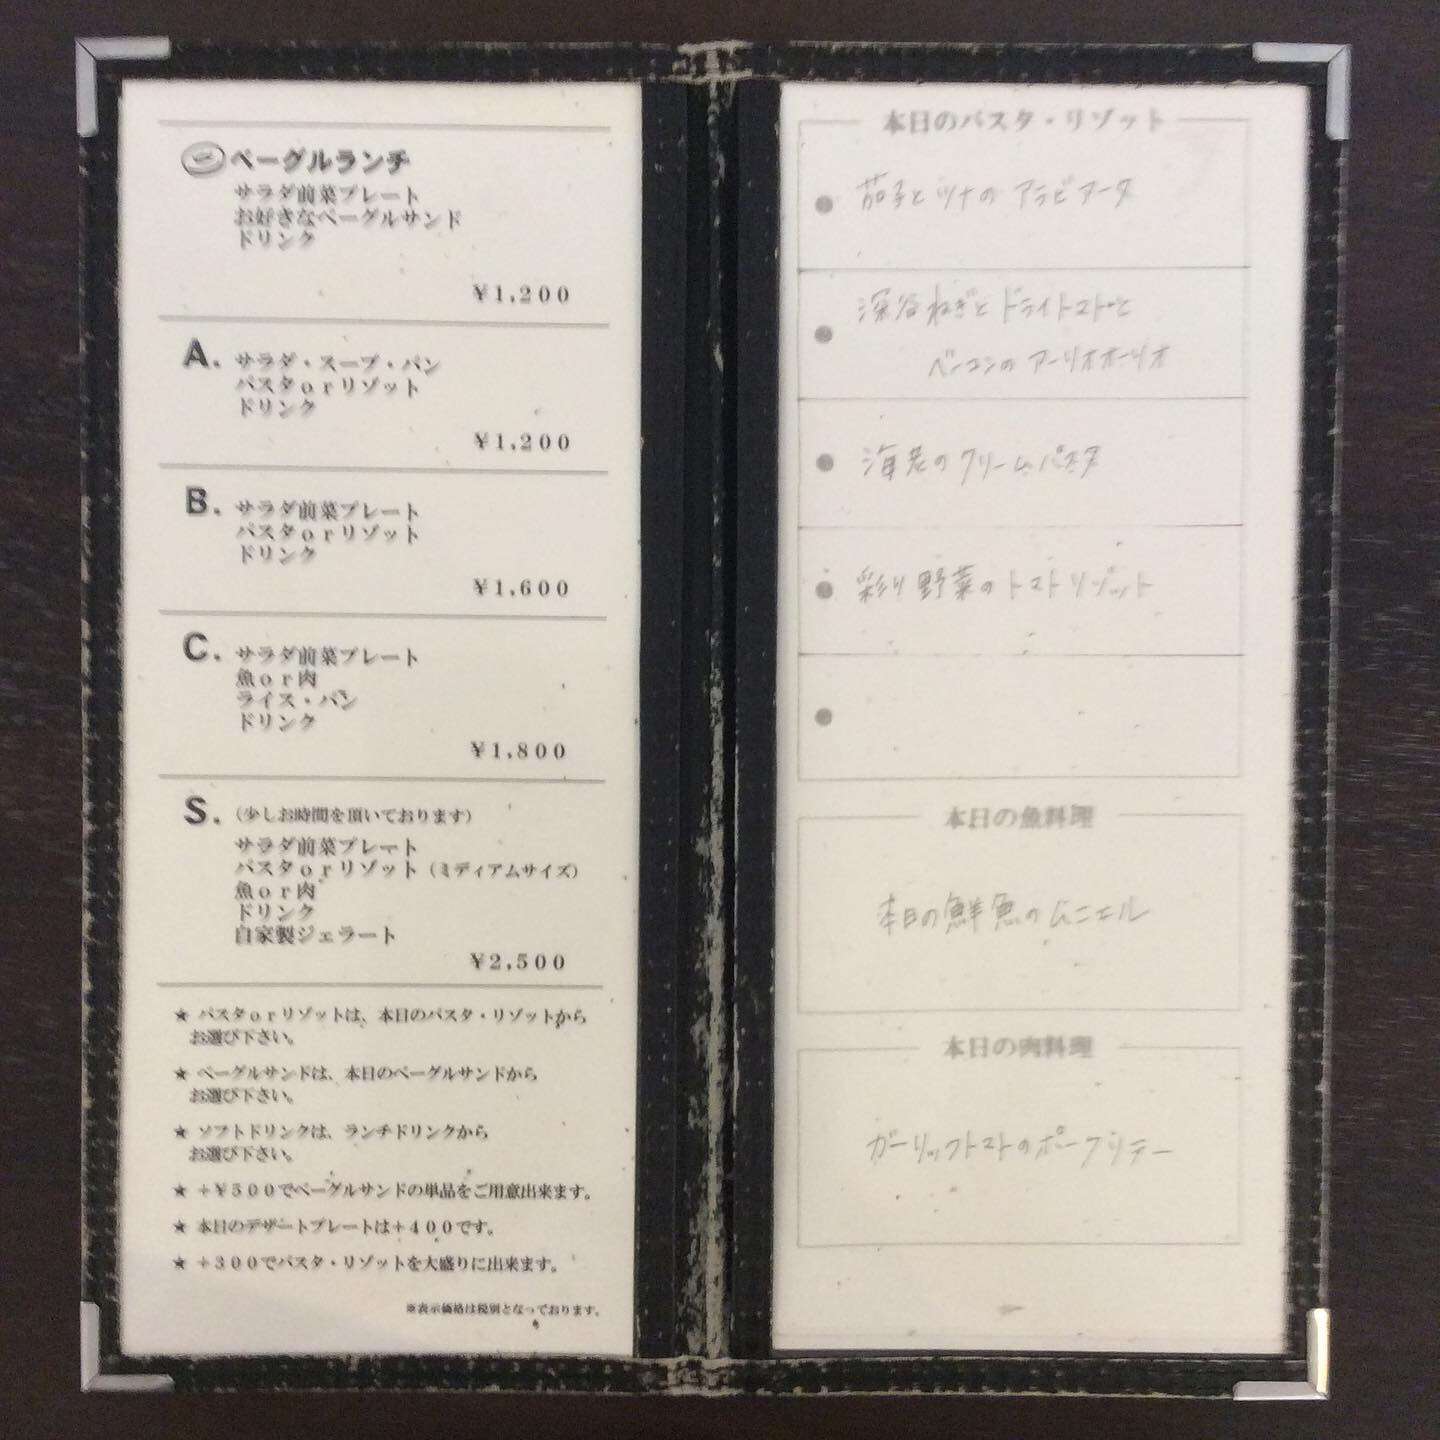 ベーグルランチ
サラダ前菜プレート
お好きなベーグルサンド
ドリンク
¥1,200
A. サラダ・スープ・パン
パスタorリゾット
ドリンク
¥1,200
B. サラダ前菜プレート
パスタorリゾット
ドリンク
¥1,600
C. サラダ前菜プレート
魚or肉
ライス・パン
ドリンク
¥1,800
S. (少しお時間を頂いております)
サラダ前菜プレート
パスタorリゾット(ミディアムサイズ)
魚or肉
ドリンク
自家製ジェラート
¥2,500
★ パスタorリゾットは、本日のパスタ・リゾットから
お選び下さい。
★ ベーグルサンドは、本日のベーグルサンドから
お選び下さい。
★ ソフトドリンクは、ランチドリンクから
お選び下さい。
★ +¥500でベーグルサンドの単品をご用意出来ます。
★ 本日のデザートプレートは+400です。
★ +300でパスタ・リゾットを大盛りに出来ます。
※表示価格は税別となっております。
本日のパスタ・リゾット
● 茄子とツナのアラビアータ
● 深谷ねぎとドライトマトと
ベーコンのアーリオオーリオ
● 海老のクリームパスタ
● 彩り野菜のトマトリゾット
●
本日の魚料理
本日の鮮魚のムニエル
本日の肉料理
ガーリックトマトのポークソテー